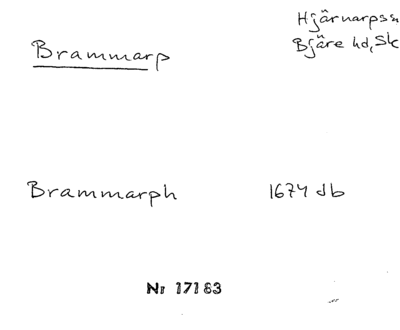 Hjärnarps sn
Bjäre hd, Sk
Brammarp
Brammarph 1674 db
Nr 17183